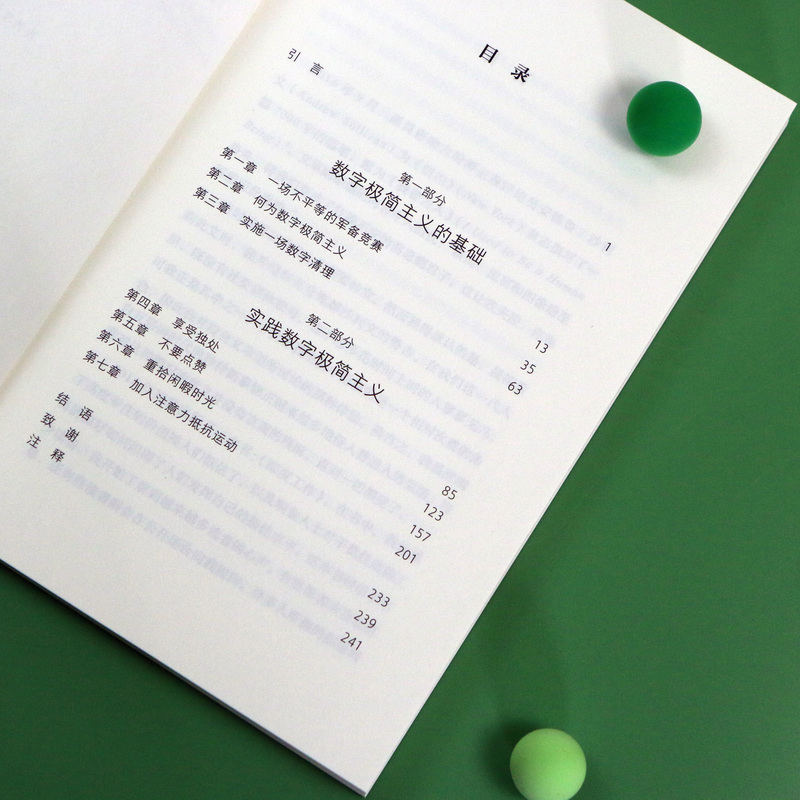 目 录
引 言 1
第一部分
数字极简主义的基础
第一章 一场不平等的军备竞赛 13
第二章 何为数字极简主义 35
第三章 实施一场数字清理 63
第二部分
实践数字极简主义
第四章 享受独处 85
第五章 不要点赞 123
第六章 重拾闲暇时光 157
第七章 加入注意力抵抗运动 201
结 语 233
致 谢 239
注 释 241